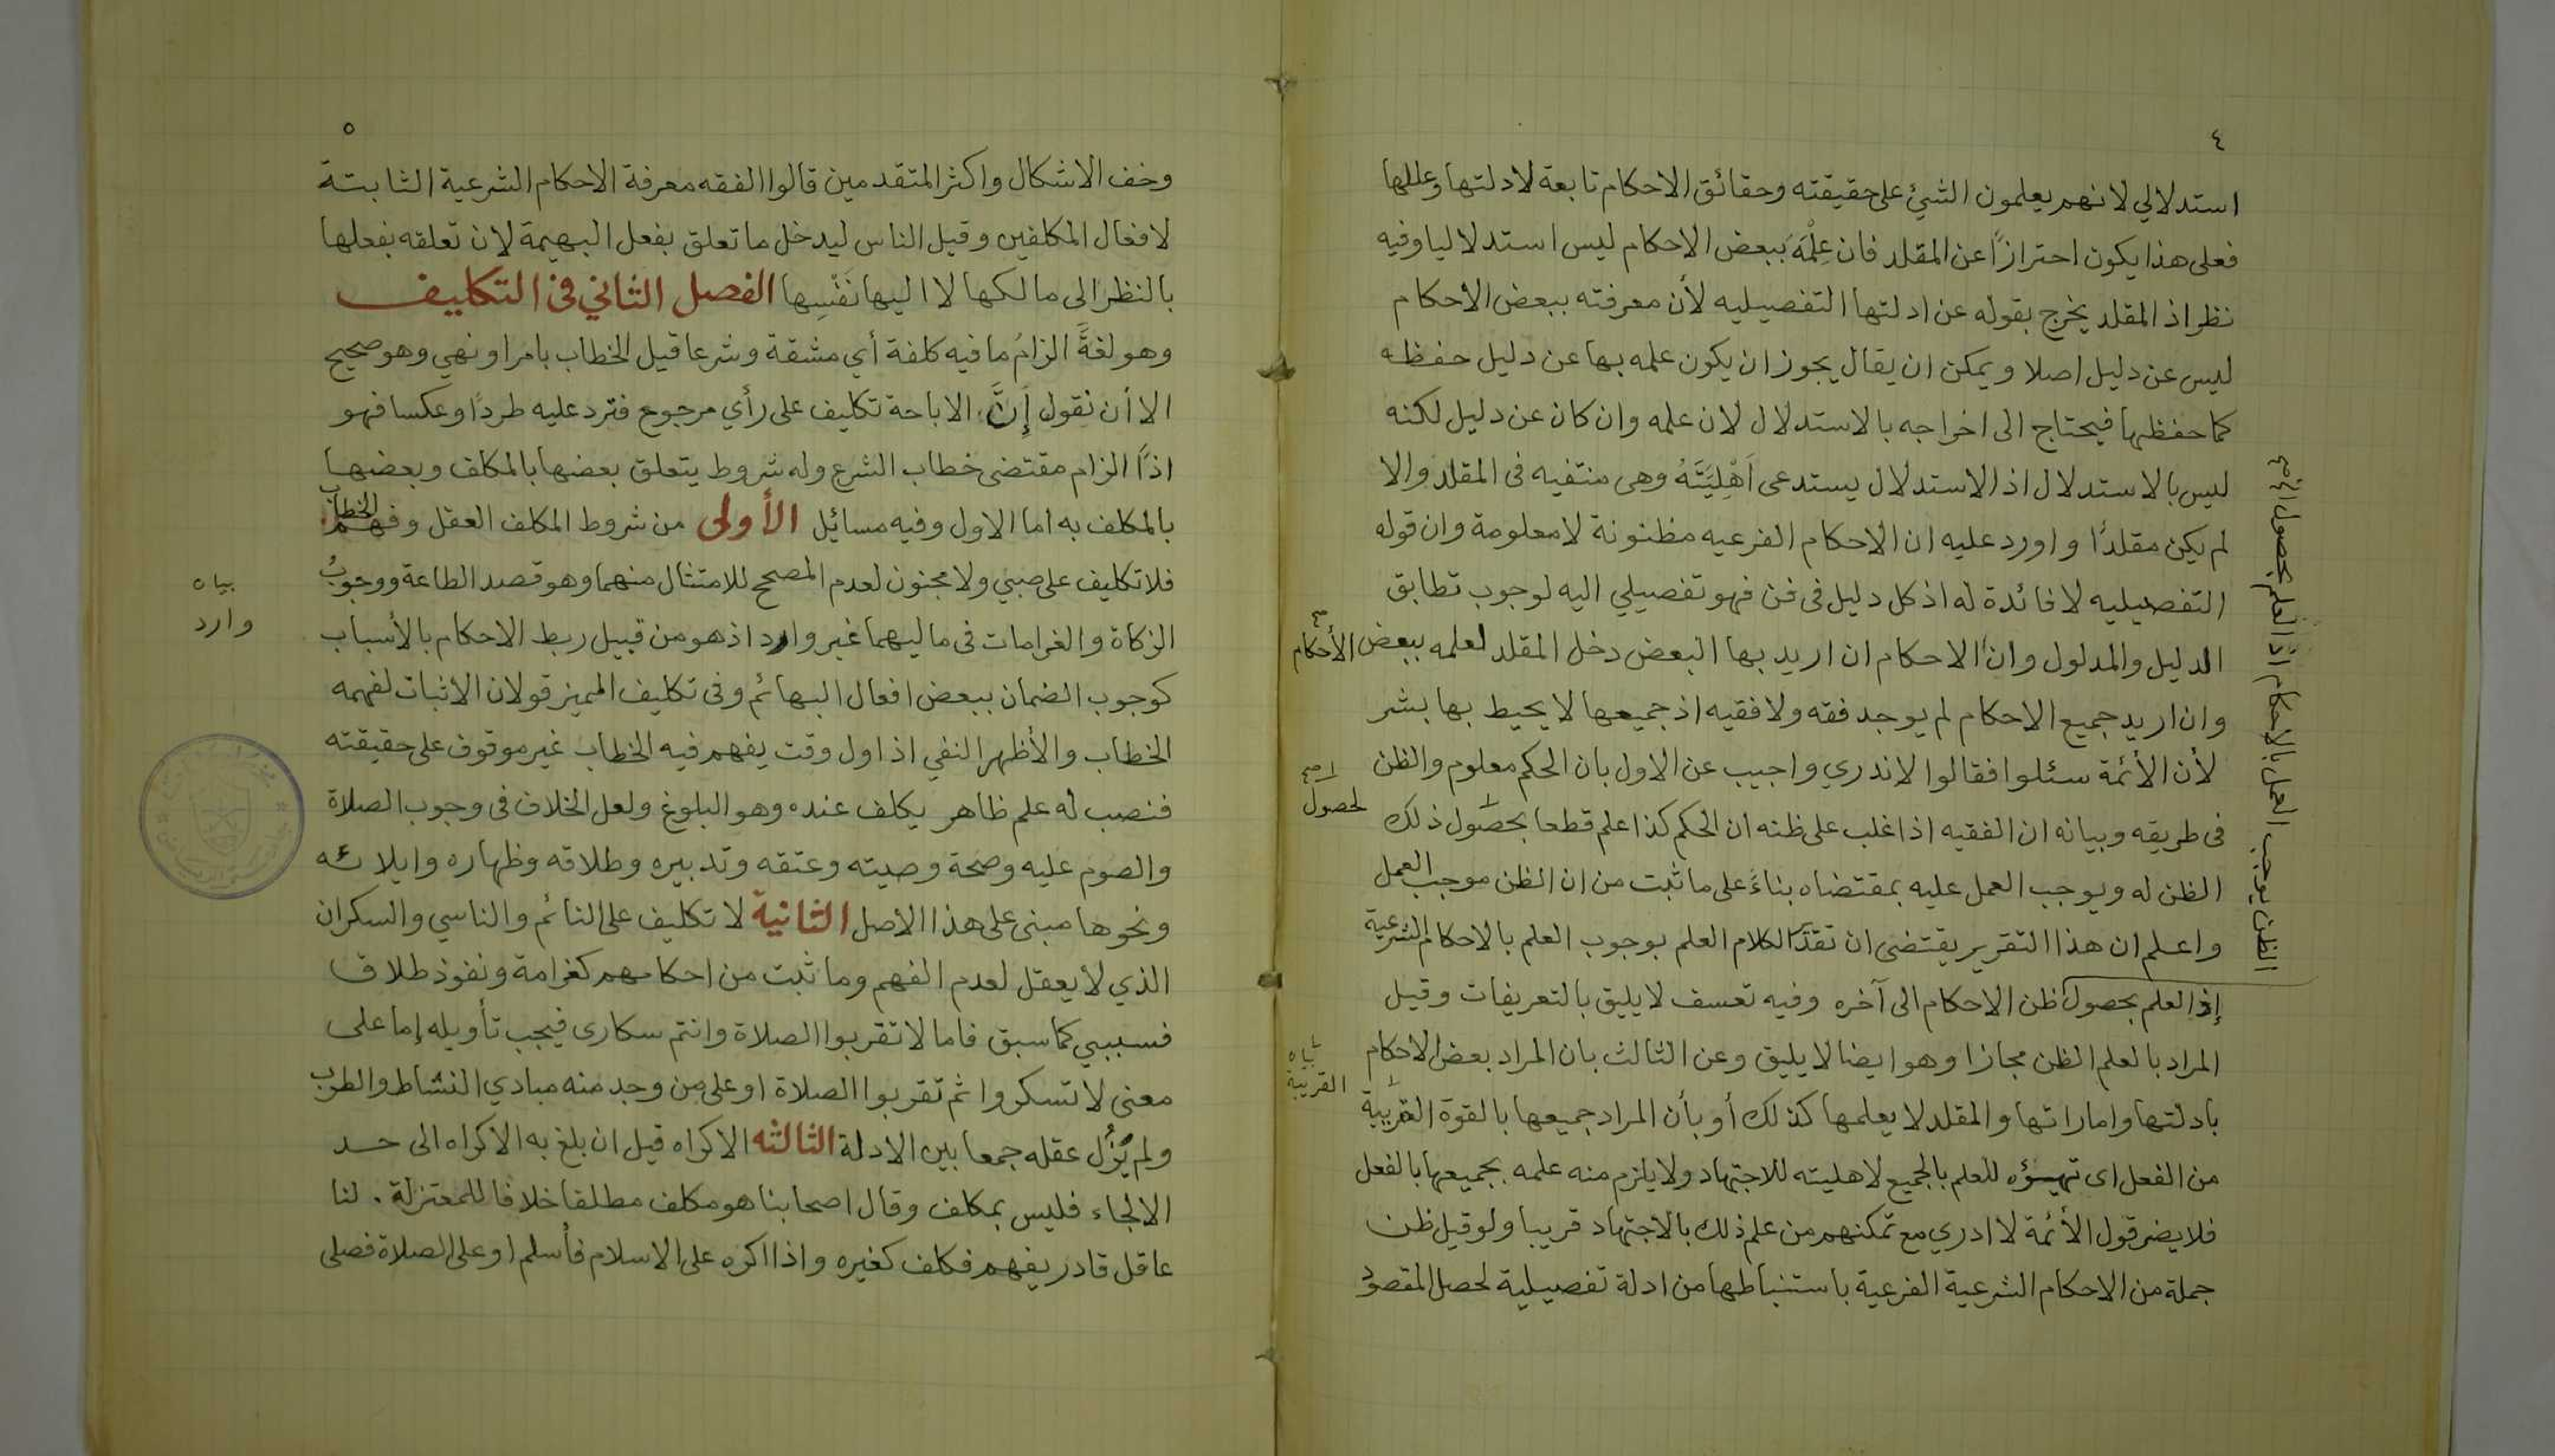 ٤
استدلالي لانهم يعلمون الشئ على حقيقته وحقائق الاحكام تابعة لادلتها وعللها
فعلى هذا يكون احترازًا عن المقلد فان عِلْمَهَ ببعض الاحكام ليس استدلاليا وفيه
نظر اذ المقلد يخرج بقوله عن ادلتها التفصيليه لأن معرفته ببعض الأحكام
ليس عن دليل اصلا ويمكن ان يقال يجوز ان يكون علمه بها عن دليل حفظه
كما حفظها فيحتاج الى اخراجه بالاستدلال لان علمه وان كان عن دليل لكنه
ليس بالاستدلال اذ الاستدلال يستدعى اَهْلِيَّتَهُ وهى منتفيه فى المقلد والا
لم يكن مقلدًا واورد عليه ان الاحكام الفرعيه مظنونة لا معلومة وان قوله
التفصيليه لا فائدة له اذ كل دليل فى فن فهو تفصيلي اليه لوجوب تطابق
الدليل والمدلول وان الاحكام ان اريد بها البعض دخل المقلد لعلمه ببعض الأحكام
وان اريد جميع الاحكام لم يوجد فقه ولا فقيه اذ جميعها لا يحيط بها بشر
لأن الأئمة سئلوا فقالوا لا ندري واجيب عن الاول بان الحكم معلوم والظن
فى طريقه وبيانه ان الفقيه اذا غلب على ظنه ان الحكم كذا علم قطعا بحصول ذلك
لحصول
الظن له ويوجب العمل عليه بمقتضاه بناءً على ما ثبت من ان الظن موجب العمل
واعلم ان هذا التقرير يقتضى ان تقدَّ الكلام العلم بوجوب العلم بالاحكام الشرعية
إذ العلم بحصول ظن الاحكام الى آخره وفيه تعسف لا يليق بالتعريفات وقيل
المراد بالعلم الظن مجازا وهو ايضا لا يليق وعن الثالث بان المراد بعض الاحكام
بادلتها واماراتها والمقلد لا يعلمها كذلك أو بأن المراد جميعها بالقوة القريبة
بيانه
القريبة
من الفعل اى تهيؤه للعلم بالجميع لاهليته للاجتهاد ولا يلزم منه علمه بجميعها بالفعل
فلا يضر قول الأئمة لا ادري مع تمكنهم من علم ذلك بالاجتهاد قريبا ولو قيل ظن
جملة من الاحكام الشرعية الفرعية باستنباطها من ادلة تفصيلية لحصل المقصود
الظن يوجب العمل بالاحكام اذ العلم بحصول
٥
وخف الاشكال واكثر المتقدمين قالوا الفقه معرفة الاحكام الشرعية الثابتة
لافعال المكلفين وقيل الناس ليدخل ما تعلق بفعل البهيمة لان تعلقه بفعلها
بالنظر الى مالكها لا اليها نَفْسِها الفصل الثاني فى التكليف
وهو لغةً الزامُ ما فيه كلفة أي مشقة وشرعا قيل الخطاب بامر او نهي وهو صحيح
الا أن نقول إِنَّ الاباحة تكليف على رأي مرجوح فترد عليه طردًا وعكسا فهو
اذًا الزام مقتضى خطاب الشرع وله شروط يتعلق بعضها بالمكلف وبعضها
بالمكلف به اما الاول وفيه مسائل الأولى من شروط المكلف العقل وفهم الخطاب
فلا تكليف على صبي ولا مجنون لعدم المصحح للامتثال منهما وهو قصد الطاعة ووجوبُ
الزكاة والغرامات فى ماليهما غير وارد اذ هو من قبيل ربط الاحكام بالأسباب
بيانه
وارد
كوجوب الضمان ببعض افعال البهائم وفى تكليف المميز قولان الاثبات لفهمه
الخطاب والأظهر النفي اذ اول وقت يفهم فيه الخطاب غير موقوف على حقيقته
فنصب له علم ظاهر يكلف عنده وهو البلوغ ولعل الخلاف فى وجوب الصلاة
والصوم عليه وصحة وصيته وعتقه وتدبيره وطلاقه وظهاره وايلائه
ونحوها مبنى على هذا الاصل الثانية لا تكليف على النائم والناسي والسكران
الذي لا يعقل لعدم الفهم وما ثبت من احكامهم كغرامة ونفوذ طلاق
فسببي كما سبق فاما لا تقربوا الصلاة وانتم سكارى فيجب تأويله إما على
معنى لا تسكروا ثم تقربوا الصلاة او على من وجد منه مبادي النشاط والطرب
ولم يَزُل عقله جمعا بين الادلة الثالثه الاكراه قيل ان بلغ به الاكراه الى حد
الالجاء فليس بمكلف وقال اصحابنا هو مكلف مطلقا خلافا للمعتزلة . لنا
عاقل قادر يفهم فكلف كغيره واذا اكره على الاسلام فأسلم او على الصلاة فصلى